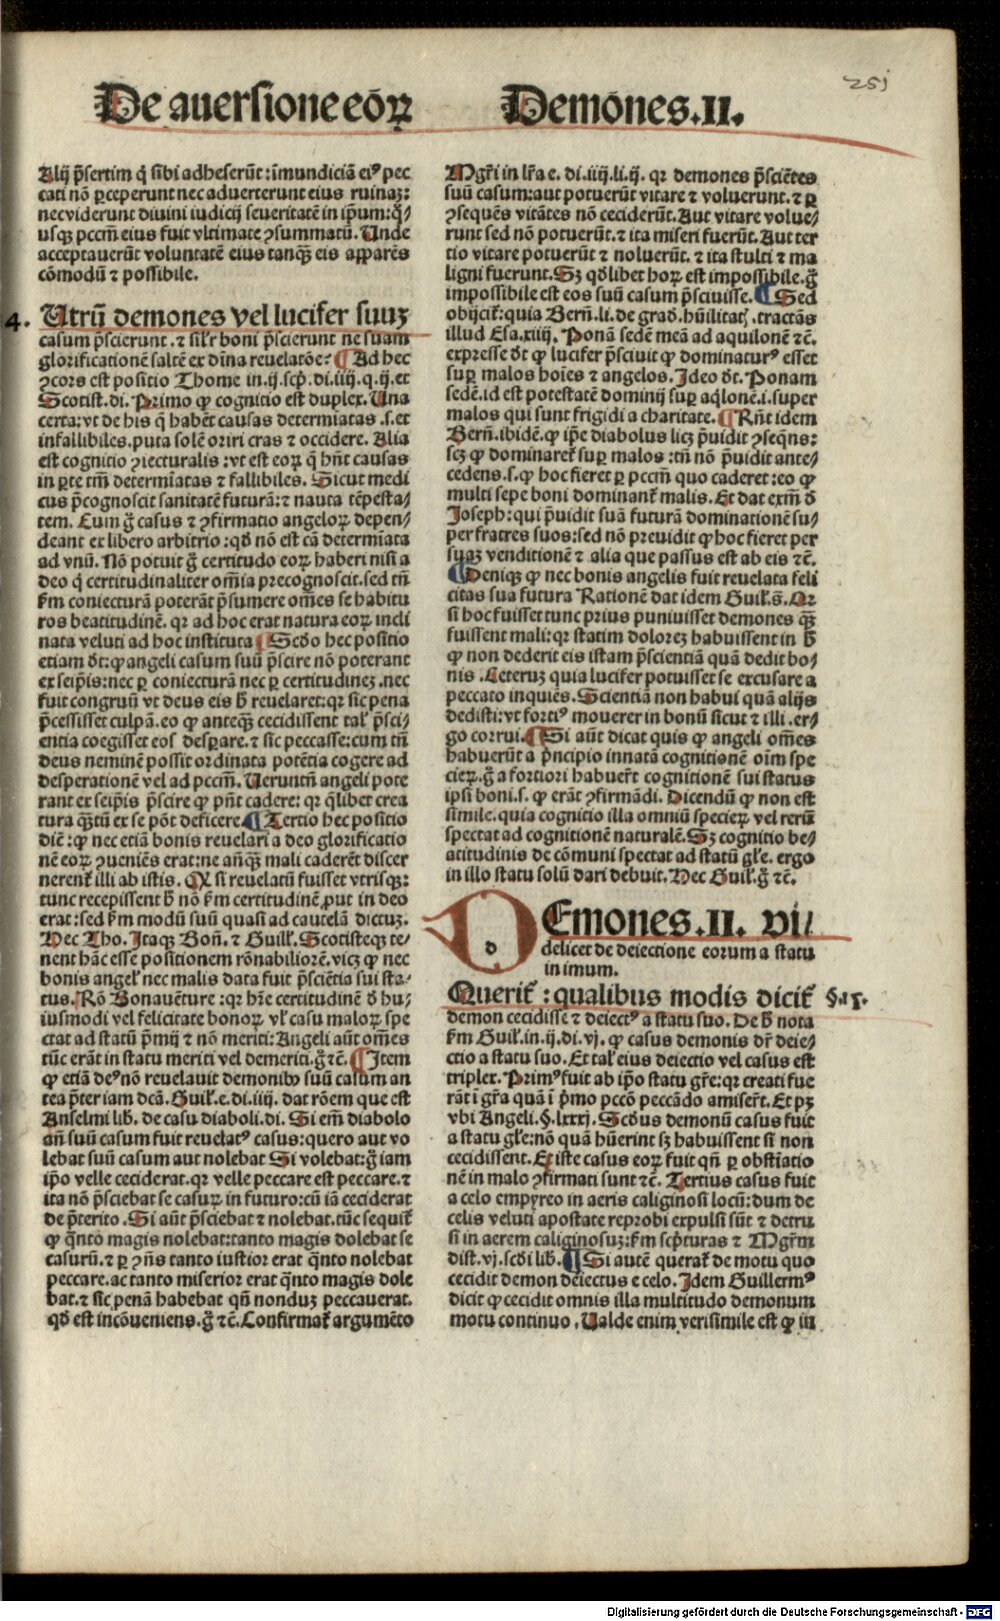 251
De auersione eoꝝ Demōnes.II.
Alij p̄sertim q̇ sibi adheserūt: īmundiciā ei⁹ pec
cati nō ꝑceperunt nec aduerterunt eius ruinaꝫ:
nec viderunt diuini iudicij seueritatē in ip̄um: q̇/
usqꝫ pccm̄ eius fuit vltimate ꝯsummatū. Unde
acceptauerūt voluntatē eius tanqꝫ eis apparēs
cōmodū ⁊ possibile.
4. Utrū demones vel lucifer suuꝫ
casum p̄scierunt. ⁊ sil'r boni p̄scierunt ne suam
glorificationē saltē ex dīna reuelatōe? ¶ Ad hec
ꝯcors est positio Thome in.ij.scp̄.di.iiij.q.ij.et
Scotist.di. Primo ꝙ cognitio est duplex. Una
certa: vt de his q̄ habēt causas determīatas .s. et
infallibiles. puta solē oriri cras ⁊ occidere. Alia
est cognitio ꝯiecturalis: vt est eoꝝ q̄ hn̄t causas
in ꝑte tm̄ determīatas ⁊ fallibiles. Sicut medi
cus p̄cognoscit sanitatē futurā: ⁊ nauta tēpesta/
tem. Cum g̊ casus ⁊ ꝯfirmatio angeloꝝ depen/
deant ex libero arbitrio: qd̄ nō est cā determīata
ad vnū. Nō potuit g̊ certitudo eoꝝ haberi nisi a
deo q̇ certitudinaliter om̄ia precognoscit. sed tn̄
ẜm coniecturā poterāt p̄sumere om̄es se habitu
ros beatitudinē. qr ad hoc erat natura eoꝝ incli
nata veluti ad hoc instituta ¶ Scd̄o hec positio
etiam dt̄: ꝙ angeli casum suū p̄scire nō poterant
ex seip̄is: nec ꝑ coniecturā nec ꝑ certitudineꝫ .nec
fuit congruū vt deus eis h̄ reuelaret: qr sic pena
p̄cessisset culpā. eo ꝙ anteqꝫ cecidissent tal' p̄sci/
entia coegisset eos desꝑare. ⁊ sic peccasse: cum tn̄
deus neminē possit ordinata potētia cogere ad
desperationē vel ad pccm̄. Ueruntn̄ angeli pote
rant ex seip̄is p̄scire ꝙ pn̄t cadere: qr q̄libet crea
tura qꝫtū ex se pōt deficere. ¶ Tertio hec positio
diē: ꝙ nec etiā bonis reuelari a deo glorificatio
nē eoꝝ ꝯueniēs erat: ne añqꝫ mali caderēt discer
nerenť illi ab istis. Q si reuelatū fuisset vtrisqꝫ:
tunc recepissent h̄ nō ẜm certitudinē ꝓut in deo
erat: sed ẜm modū suū quasi ad cautelā dictuꝫ.
Hec Tho. Itaqꝫ Bon. ⁊ Guill'. Scotisteqꝫ te/
nent hāc esse positionem rōnabiliorē. vicꝫ ꝙ nec
bonis angel' nec malis data fuit p̄sciētia sui sta/
tus. Rō Bonauēture: qr hr̄e certitudinē d̓ hu/
iusmodi vel felicitate bonoꝝ vl' casu maloꝝ spe
ctat ad statū p̄mij ⁊ nō meriti: Angeli aūt om̄es
tūc erāt in statu meriti vel demeriti. g̊ ⁊c̄. ¶ Item
ꝙ etiā de⁹ nō reuelauit demonibꝰ suū casum an
tea p̄ter iam dcā. Guil'.e.di.iiij. dat rōem que est
Anselmi lib. de casu diaboli.di. Si em̄ diabolo
añ suū casum fuit reuelat⁹ casus: quero aut vo
lebat suū casum aut nolebat Si volebat: g̊ iam
ip̄o velle ceciderat. qr velle peccare est peccare. ⁊
ita nō p̄sciebat se casuꝝ in futuro: cū iā ceciderat
de p̄terito. Si aūt p̄sciebat ⁊ nolebat. tūc sequiť
ꝙ qn̄to magis nolebat: tanto magis dolebat se
casurū. ⁊ ꝑ ꝯn̄s tanto iustior erat qn̄to nolebat
peccare. ac tanto miserior erat qn̄to magis dole
bat. ⁊ sic penā habebat qn̄ nonduꝫ peccauerat.
qd̄ est incōueniens. g̊ ⁊c̄. Confirmať argumēto
Mgr̄i in lr̄a e. di.iiij.li.ij. qr demones p̄sciētes
suū casum: aut potuerūt vitare ⁊ voluerunt. ⁊ ꝑ
ꝯsequēs vitātes nō ceciderūt. Aut vitare volue/
runt sed nō potuerūt. ⁊ ita miseri fuerūt. Aut ter
tio vitare potuerūt ⁊ noluerūt. ⁊ ita stulti ⁊ ma
ligni fuerunt. Sꝫ qd̓libet hoꝝ est impossibile. g̊
impossibile est eos suū casum p̄sciuisse. ¶ Sed
obijciť: quia Bern̄.li. de grad. hūilitatꝭ .tractās
illud Esa.xiiij. Ponā sedē meā ad aquilonē ⁊c̄.
expresse dt̄ ꝙ lucifer p̄sciuit ꝙ dominatur⁹ esset
suꝑ malos hoīes ⁊ angelos. Ideo dt̄. Ponam
sedē. id est potestatē dominij suꝑ aq̇lonē.i.super
malos qui sunt frigidi a charitate. ¶ Rn̄t idem
Bern̄.ibidē. ꝙ ip̄e diabolus licꝫ p̄uidit ꝯseqn̄s:
scꝫ ꝙ dominareť suꝑ malos: tn̄ nō p̄uidit ante/
cedens.s. ꝙ hoc fieret ꝑ pccm̄ quo caderet: eo ꝙ
multi sepe boni dominanť malis. Et dat exm̄ d̓
Joseph: qui p̄uidit suā futurā dominationē su/
per fratres suos: sed nō preuidit ꝙ hoc fieret per
suaꝫ venditionē ⁊ alia que passus est ab eis ⁊c̄.
¶ Deniqꝫ ꝙ nec bonis angelis fuit reuelata feli
citas sua futura Rationē dat idem Guil'.s̄. Qr
si hoc fuisset tunc prius puniuisset demones qꝫ
fuissent mali: qr statim doloreꝫ habuissent in h̄
ꝙ non dederit eis istam p̄scientiā quā dedit bo/
nis. Ceteruꝫ quia lucifer potuisset se excusare a
peccato inquiēs. Scientiā non habui quā alijs
dedisti: vt forti⁹ mouerer in bonū sicut ⁊ illi. er/
go corrui. ¶ Si aūt dicat quis ꝙ angeli om̄es
habuerūt a p̄ncipio innatā cognitionē oīm spe
cieꝝ. g̊ a fortiori habuer̄t cognitionē sui status
ipsi boni.s. ꝙ erāt ꝯfirmādi. Dicendū ꝙ non est
simile. quia cognitio illa omniū specieꝝ vel rerū
spectat ad cognitionē naturalē. Sꝫ cognitio be/
atitudinis de cōmuni spectat ad statū gl'e. ergo
in illo statu solū dari debuit. Hec Guil'. g̊ ⁊c̄.
DEmones.II. vi/
delicet de deiectione eorum a statu
in imum.
Queriť: qualibus modis diciť §.15.
demon cecidisse ⁊ deiect⁹ a statu suo. De h̄ nota
ẜm Guil'.in.ij.di.vj. ꝙ casus demonis dr̄ deie/
ctio a statu suo. Et tal' eius deiectio vel casus est
triplex. Prim⁹ fuit ab ip̄o statu gr̄e: qr creati fue
rāt ī gr̄a quā ī p̄mo pccō peccādo amiser̄t. Et pꝫ
vbi Angeli. §.lxxxj. Scd̄us demonū casus fuit
a statu gl'e: nō quā hūerint sꝫ habuissent si non
cecidissent. Et iste casus eoꝝ fuit qn̄ ꝑ obstīatio
nē in malo ꝯfirmati sunt ⁊c̄. Tertius casus fuit
a celo empyreo in aeris caliginosi locū: dum de
celis veluti apostate reprobi expulsi sūt ⁊ detru
si in aerem caliginosuꝫ: ẜm scp̄turas ⁊ Mgr̄m
dist.vj.scd̓i lib. ¶ Si autē querať de motu quo
cecidit demon deiectus e celo. Idem Guillerm⁹
dicit ꝙ cecidit omnis illa multitudo demonum
motu continuo. Ualde enim verisimile est ꝙ in
Digitalisierung gefördert durch die Deutsche Forschungsgemeinschaft - DFG